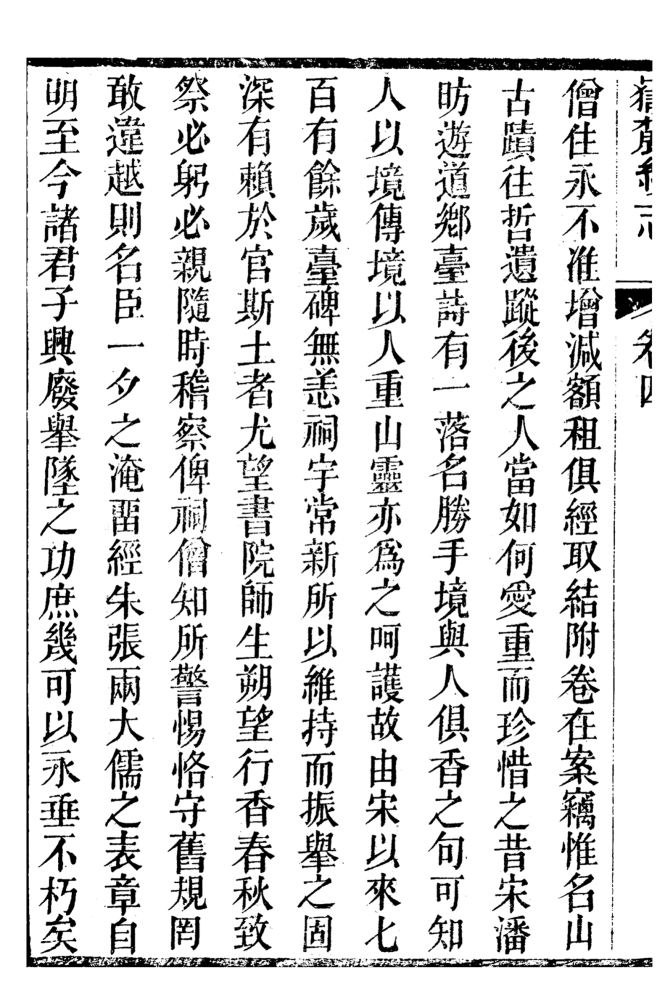 嶽麓續志　卷四
僧住永不准增減額租俱經取結附卷在案竊惟名山
古蹟往哲遺蹤後之人當如何愛重而珍惜之昔宋潘
昉遊道鄉臺詩有一落名勝手境與人俱香之句可知
人以境傳境以人重山靈亦爲之呵護故由宋以來七
百有餘歲臺碑無恙祠宇常新所以維持而振舉之固
深有賴於官斯土者尤望書院師生朔望行香春秋致
祭必躬必親隨時稽察俾祠僧知所警惕恪守舊規罔
敢違越則名臣一夕之淹畱經朱張兩大儒之表章自
明至今諸君子興廢舉墜之功庶幾可以永垂不朽矣